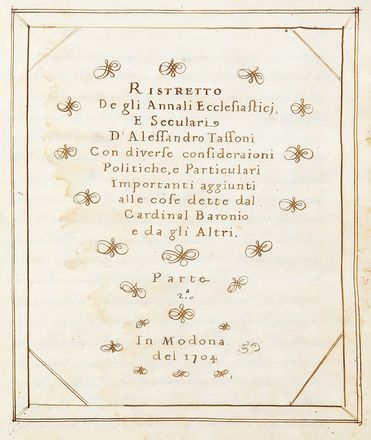 RISTRETTO
De gli Annali Ecclesiasticj,
E Seculari
D'Alessandro Tassoni
Con diverse consideraioni
Politiche, e Particulari
Importanti aggiunti
alle cose dette dal
Cardinal Baronio
e da gli Altri.
Parte
2.a
In Modona
del 1704